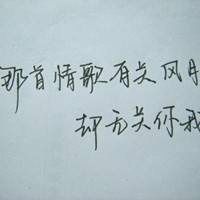 那首情歌有关风月
却无关你我